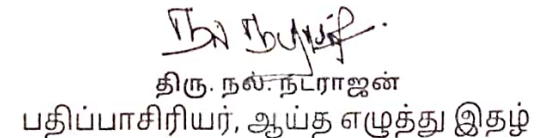 திரு. நல். நடராஜன்
பதிப்பாசிரியர், ஆய்த எழுத்து இதழ்